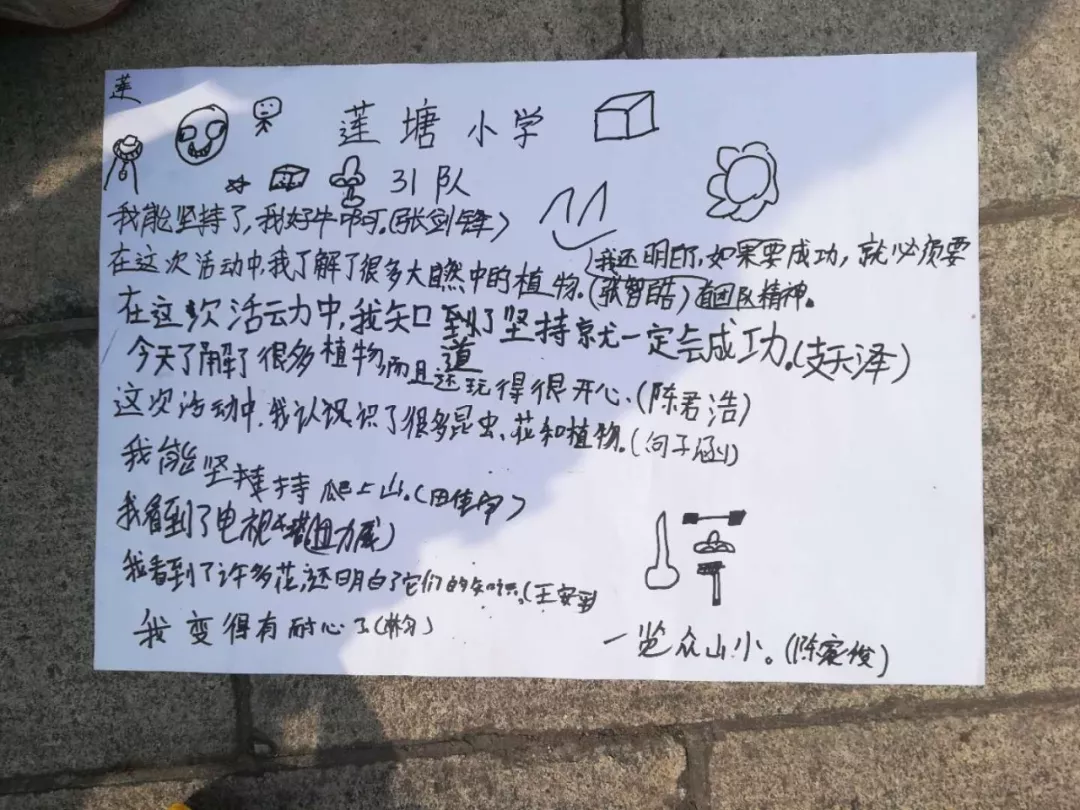 莲
莲塘小学
31队
我能坚持了,我好牛啊。(张剑锋)
在这次活动中,我了解了很多大自然中的植物。(张智皓)
(我还明白了,如果要成功,就必须要
有团队精神。
在这次活动中,我知道到了坚持就一定会成功。(支天泽)
今天了解了很多植物,而且还玩得很开心。(陈君浩)
这次活动中,我认识识了很多昆虫、花和植物。(向子涵)
我能坚持持爬上山。(田佳宇)
我看到了电视塔
我看到了许多花,还明白了它们的知识。(王安
我变得有耐心了
一览众山小。(陈家俊)